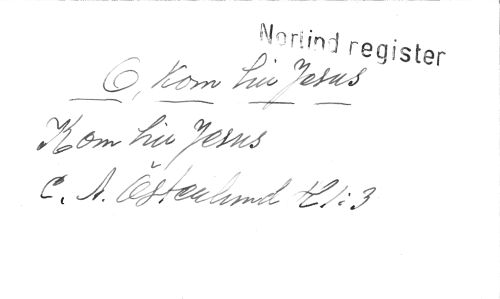 Norlind register
O, Kom hit Jesus
Kom hit Jesus
C. A. Österlund 21:3